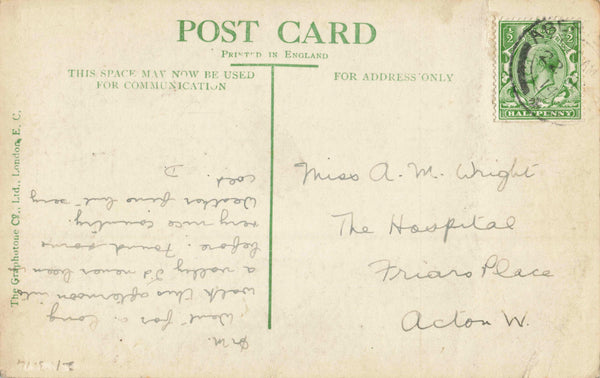 POST CARD
PRINTED IN ENGLAND
THIS SPACE MAY NOW BE USED
FOR COMMUNICATION
FOR ADDRESS ONLY
½ ½
HALFPENNY
The Graphotone Co., Ltd., London, E. C.
Miss A. M. Wright
The Hospital
Friars Place
Acton W.
Went for a long
walk this afternoon into
a valley I'd never been
before. Found some
very nice country.
Weather fine but very
cold. D